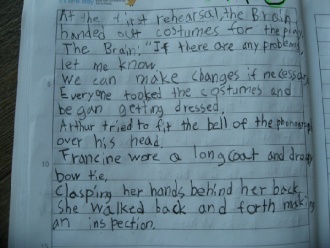 At the first rehearsal, the Brain
handed out costumes for the play.
The Brain: "If there are any problems,
let me know.
We can make changes if necessary
Everyone tooked the costumes and
began getting dressed.
Arthur tried to fit the bell of the phonograph
over his head.
Francine wore a long coat and
bow tie,
Clasping her hands behind her back,
She walked back and forth making
an inspection.